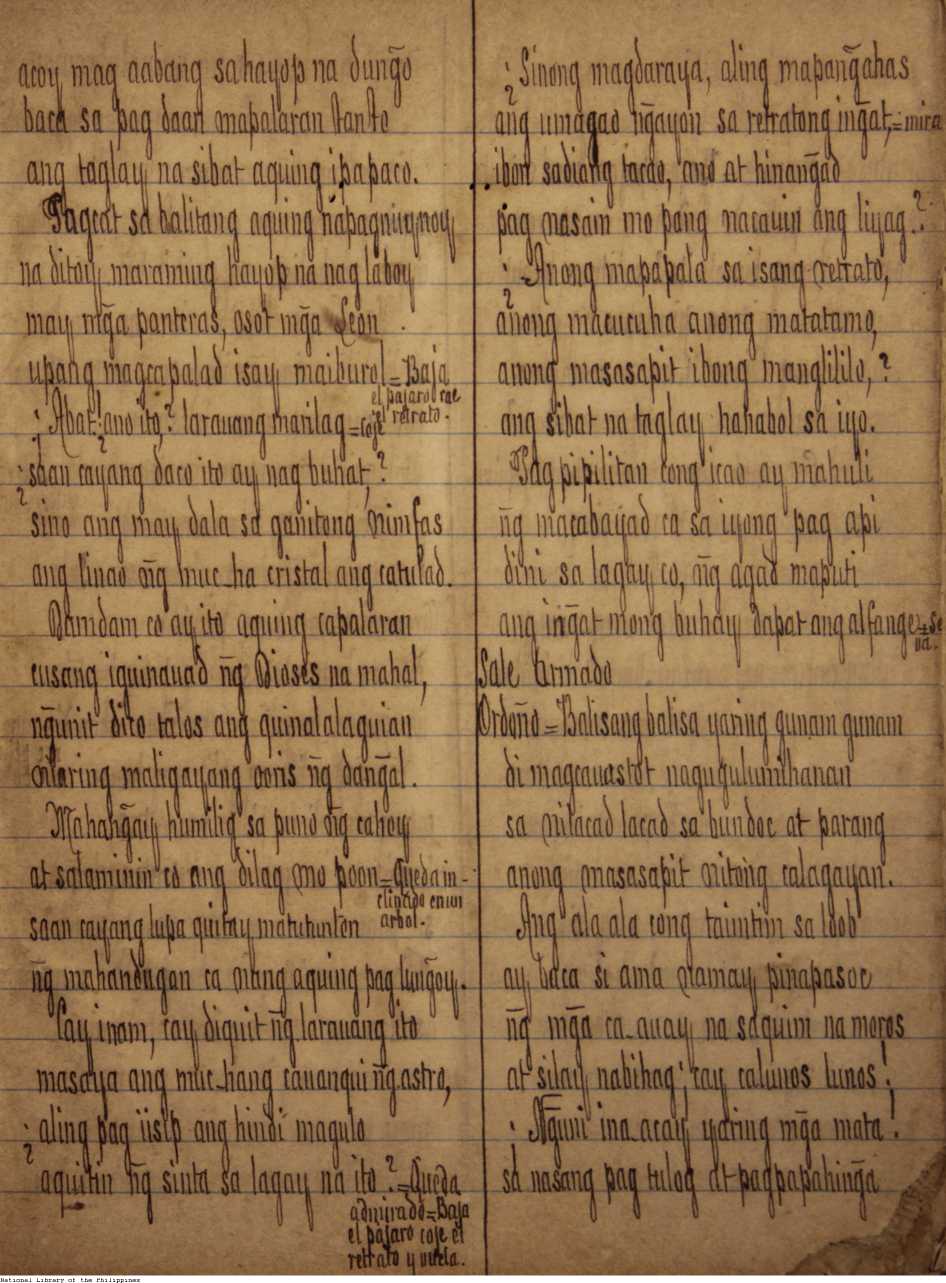 acoy mag aabang sa hayop na dungo
baca sa pag daan mapalaran tanto
ang taglay na sibat aquing ipapaco.
Pagcat sa balitang aquing napagniig noy
na ditoy maraming hayop na nag laboy
may mg̃a panteras, osot mg̃a Leon
upang magcapalad isay maiburol = Baja
el pajaro cae
el retrato.
¡Abat! ¿ano ito,? larauang marilag = coje
¿saan cayang daco ito ay nag buhat,?
sino ang may dala sa ganitong Nimfas
ang linao ng̃ muc-ha cristal ang catulad.
Damdam co ay ito aquing capalaran
cusang iguinauad ng̃ Dioses na mahal,
ng̃unit dito talos ang quinalalaguian
nitaring maligayang ooris ng̃ dang̃al.
Mahang̃ay humilig sa puno ng̃ cahoy
at salaminin co ang dilag mo poon = Queda in-
clinado en un
arbol.
saan cayang lupa quitay matutunton
ng̃ mahandugan ca nitang aquing pag lung̃oy.
Cay inam, cay diquit ng̃ larauang ito
masaya ang muc-hang cauangqui ng̃ astro,
¿aling pag iisip ang hindi magulo
aquitin ng̃ sinta sa lagay na ito? = Queda
admirado = Baja
el pajaro coje el
retrato y vuela.
¿Sinong magdaraya, aling mapang̃ahas
ang umagao ng̃ayon sa retratong ing̃at, = mira
ibon sadiang tacao, ano at hinang̃ad
pag nasain mo pang nacauin ang liyag?
¿Anong mapapala sa isang retrato,
anong macucuha anong matatamo,
anong masasapit ibong manglililo,?
ang sibat na taglay hahabol sa iyo.
Pag pipilitan cong icao ay mahuli
ng̃ macabayad ca sa iyong pag api
dini sa lagay co, ng̃ agad maputi
ang ing̃at mong buhay dapat ang alfange = Se
va.
Sale Armado
Ordoño = Balisang balisa yaring gunam gunam
di magcauastot nagugulumihanan
sa nilacad lacad sa bundoc at parang
anong masasapit nitong calagayan.
Ang ala ala cong taimtim sa loob
ay baca si ama namay pinapasoc
ng̃ mg̃a ca-auay na saquim na moros
at silay nabihag, cay calunos lunos!
¡Ng̃uni ina-acay yaring mg̃a mata!
sa nasang pag tulog at pagpapahing̃a
National Library of the Philippines